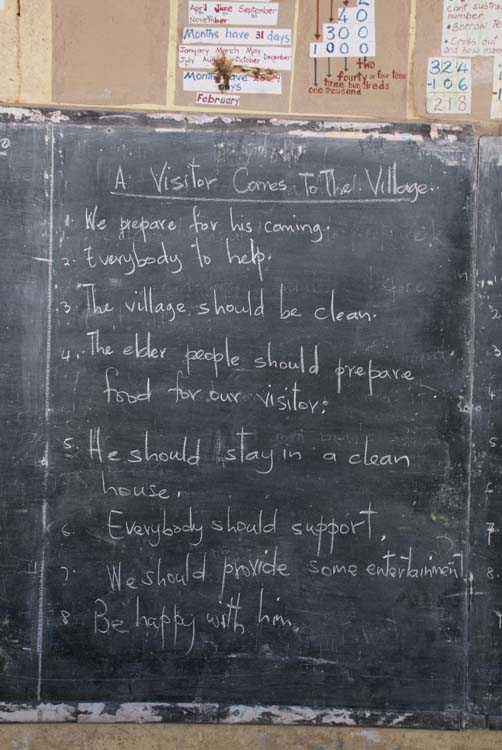 April June September
November
Months have 31 days
January March May
July August October December
Months have
days
February
40
300
1000
two
fourty or four tens
three hundreds
one thousand
cant subtra
number.
• Borrow
• Cross out
and how man
324
-106
218
A Visitor Comes To The Village.
1. We prepare for his coming.
2. Everybody to help.
3. The village should be clean.
4. The elder people should prepare
food for our visitor.
5. He should stay in a clean
house.
6. Everybody should support.
7. We should provide some entertainment
8. Be happy with him.
2.
3.
4.
5.
6.
7.
8.